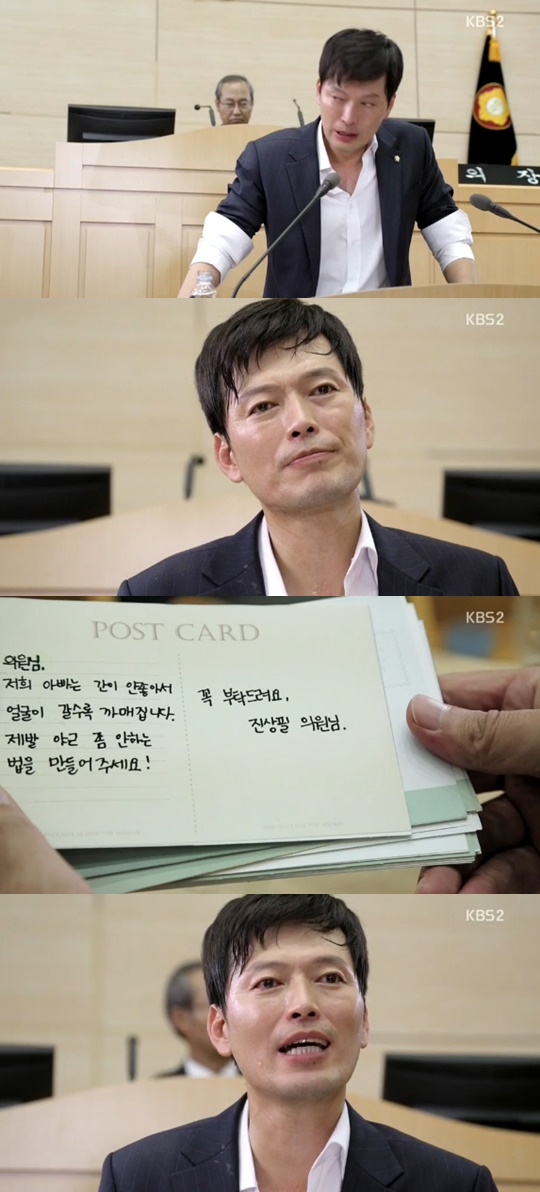 KBS2
의 장
KBS2
KBS2
POST CARD
의원님.
저희 아빠는 간이 안좋아서
얼굴이 갈수록 까매집니다.
제발 야근 좀 안하는
법을 만들어주세요!
꼭 부탁드려요,
진상필 의원님.
KBS2